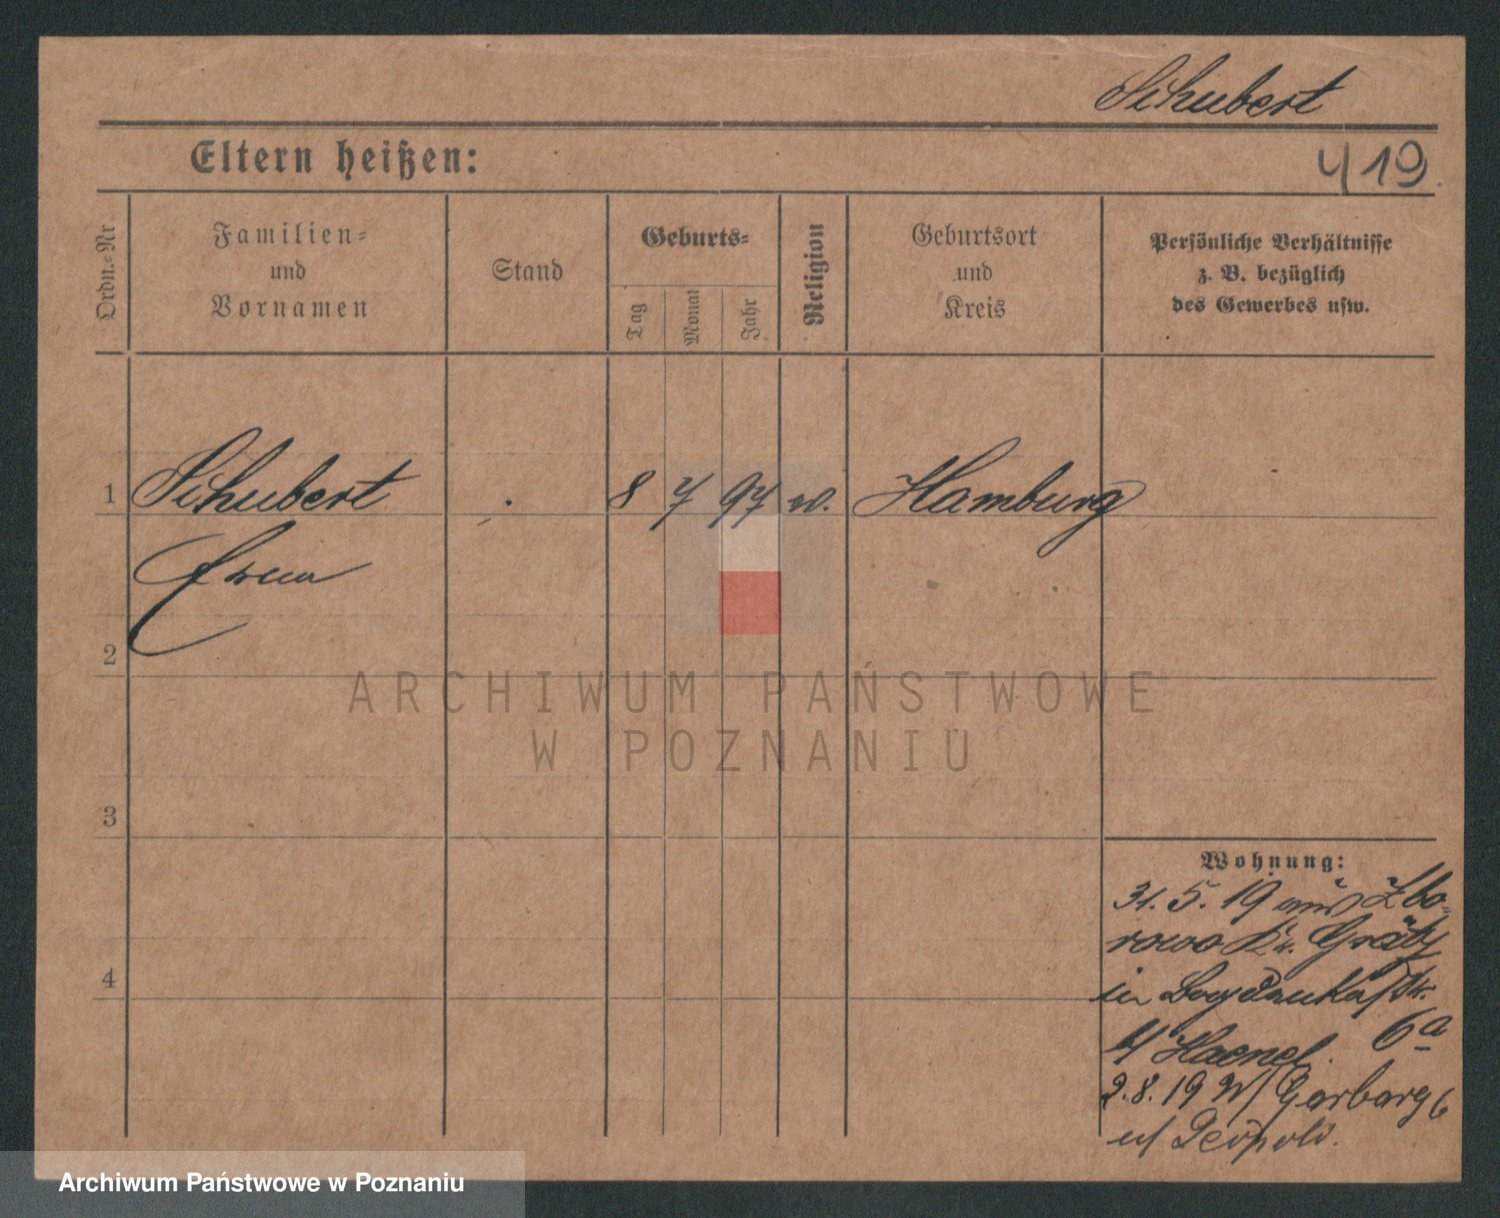 Schubert
Eltern heißen:
419.
Ordn.-Nr
Familien-
und
Vornamen
Stand
Geburts-
Tag
Monat
Jahr
Religion
Geburtsort
und
Kreis
Persönliche Verhältnisse
z. B. bezüglich
des Gewerbes usw.
1 Schubert 8 7 97 Hamburg
Erna
2
3
4
Wohnung:
31. 5. 19 aus Zbo-
rowo Kr. Grätz
in
b/ Haenel. 6a
2. 8. 19 Gerberg 6
b/ Leopold.
ARCHIWUM PAŃSTWOWE
W POZNANIU
Archiwum Państwowe w Poznaniu